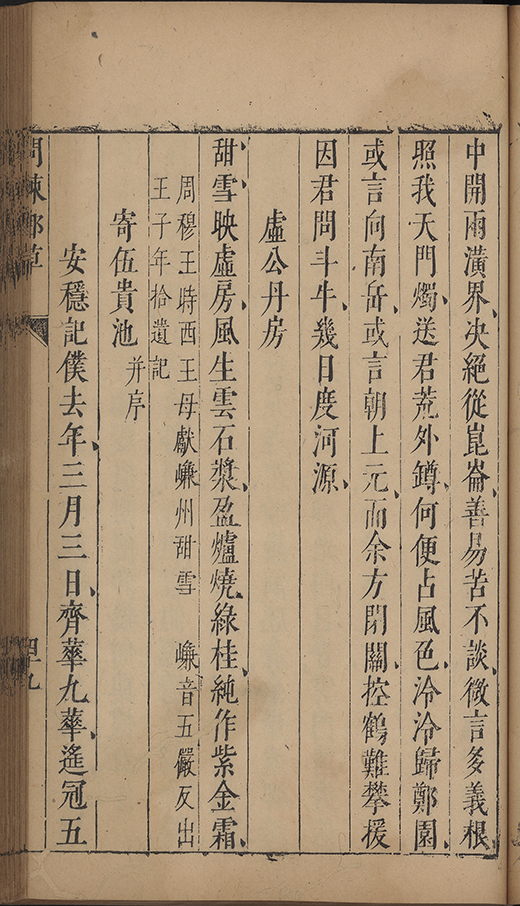 中開兩潢界、决絕從崑崙、善易苦不談、微言多義根、
照我天門燭、送君荒外罇、何便占風色、泠泠歸鄭園、
或言向南岳、或言朝上元、而余方閉關、控鶴難攀援
因君問斗牛、幾日度河源、
虛公丹房
甜雪映虛房、風生雲石漿、盈爐燒綠桂、純作紫金霜、
周穆王時西王母獻嵰州甜雪　嵰音五儼反出
王子年拾遺記
寄伍貴池并序
安穩記僕去年、三月三日、齊華九華、遙冠五
問棘郵草
四十九